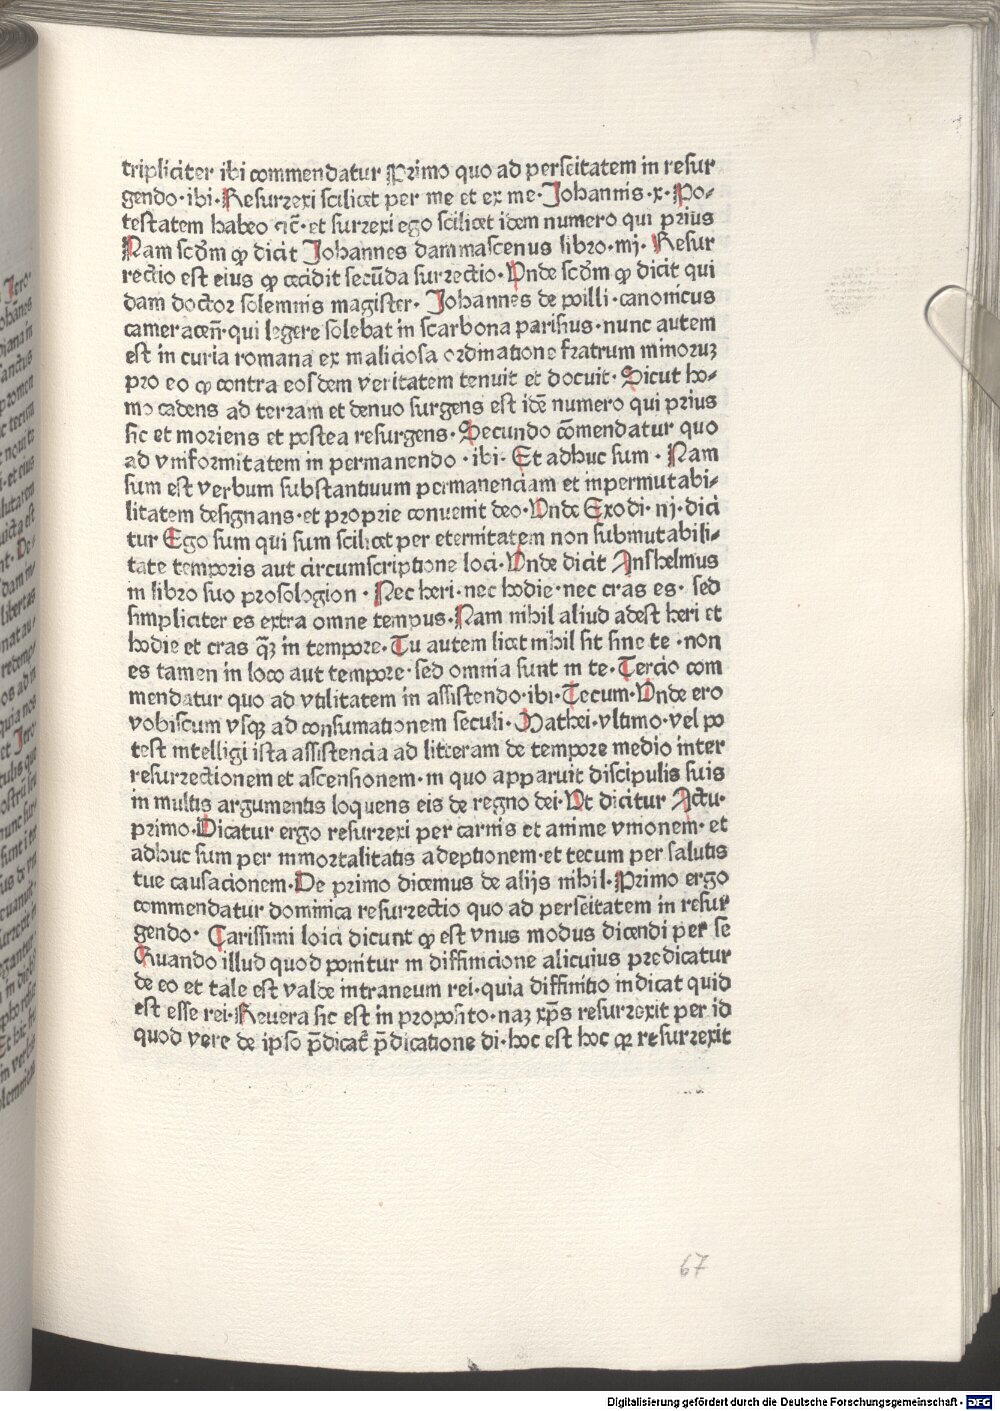 tripliciter ibi commendatur Primo quo ad perseitatem in resur
gendo·ibi·Resurrexi scilicet per me et ex me·Johannis·x·Po-
testatem habeo ⁊c̄·et surrexi ego scilicet idem numero qui prius
Nam scd̄m ꝙ dicit Johannes dammascenus libro·iiij·Resur
rectio est eius ꝙ cecidit secūda surrectio·Unde scd̄m ꝙ dicit qui
dam doctor solemnis magister·Johannes de poilli·canonicus
cameracen̄·qui legere solebat in scarbona parisius·nunc autem
est in curia romana ex maliciosa ordinatione fratrum minoruꝫ
pro eo ꝙ contra eosdem veritatem tenuit et docuit·Sicut ho-
mo cadens ad terram et denuo surgens est idē numero qui prius
sic et moriens et postea resurgens·Secundo cōmendatur quo
ad vniformitatem in permanendo·ibi·Et adhuc sum·Nam
sum est verbum substantiuum permanenciam et inpermutabi-
litatem designans·et proprie conuenit deo·Unde Exodi·iij·dici
tur Ego sum qui sum scilicet per eternitatem non submutabili-
tate temporis aut circumscriptione loci·Unde dicit Anshelmus
in libro suo prosologion·Nec heri·nec hodie·nec cras es·sed
simpliciter es extra omne tempus·Nam nihil aliud adest heri et
hodie et cras qꝫ in tempore·Tu autem licet nihil sit sine te·non
es tamen in loco aut tempore·sed omnia sunt in te·Tercio com
mendatur quo ad vtilitatem in assistendo·ibi·Tecum·Unde ero
vobiscum vsqꝫ ad consumationem seculi·Mathei·vltimo·vel po
test intelligi ista assistencia ad litteram de tempore medio inter
resurrectionem et ascensionem·in quo apparuit discipulis suis
in multis argumentis loquens eis de regno dei·Ut dicitur Actu·
primo·Dicatur ergo resurrexi per carnis et anime vnionem·et
adhuc sum per inmortalitatis adeptionem·et tecum per salutis
tue causacionem·De primo dicemus de alijs nihil·Primo ergo
commendatur dominica resurrectio quo ad perseitatem in resur
gendo·Carissimi loici dicunt ꝙ est vnus modus dicendi per se
Quando illud quod ponitur in diffinicione alicuius predicatur
de eo et tale est valde intraneum rei·quia diffinitio indicat quid
est esse rei·Reuera sic est in proposito·naꝫ xp̄s resurrexit per id
quod vere de ipso p̄dicat᷑ p̄dicatione di·hoc est hoc qꝛ resurrexit
67
Digitalisierung gefördert durch die Deutsche Forschungsgemeinschaft - DFG